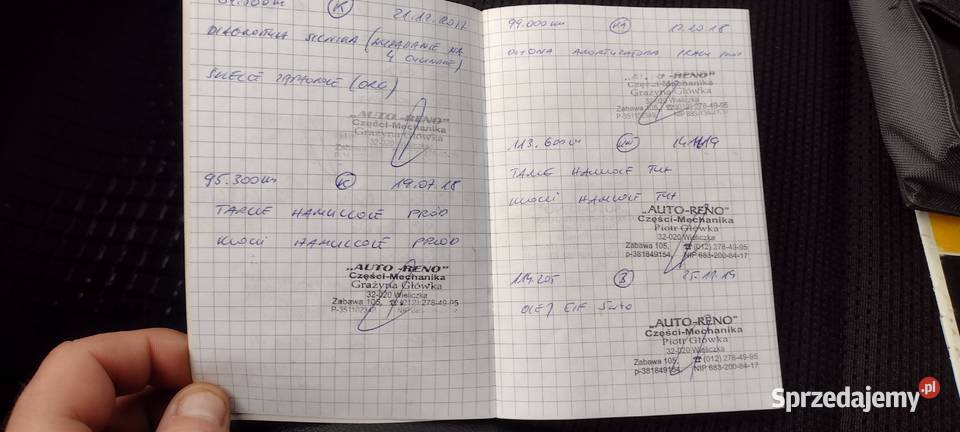 21.12.2017
DIAGNOSTYKA SILNIKA (WYPADANIE NA
4 CYLINDRZE)
ŚWIECE ZAPŁONOWE (ORG)
„AUTO-RENO"
Części-Mechanika
Grażyna Główka
95.300km K 19.07.18
TARCZE HAMULCOWE PRZÓD
KLOCKI HAMULCOWE PRZÓD
„AUTO-RENO"
Części-Mechanika
Grażyna Główka
32-020 Wieliczka
Zabawa 105, ☎ (012) 278-49-95
99.000km 17.10.18
OSŁONA AMORTYZATORA PRAWY
RENO"
Części-Mechanika
Grażyna Główka
32-020 Wieliczka
Zabawa 105, ☎ (012) 278-49-95
113.600km 14.11.19
TARCZE HAMULCOWE TYŁ
KLOCKI HAMULCOWE TYŁ
„AUTO-RENO"
Części-Mechanika
Piotr Główka
32-020 Wieliczka
Zabawa 105, ☎ (012) 278-49-95
p-381849154, NIP 683-200-84-17
114.205 B 25.11.19
OLEJ ELF 5W40
„AUTO-RENO"
Części-Mechanika
Piotr Główka
32-020 Wieliczka
Zabawa 105, ☎ (012) 278-49-95
p-381849154, NIP 683-200-84-17
Sprzedajemy.pl